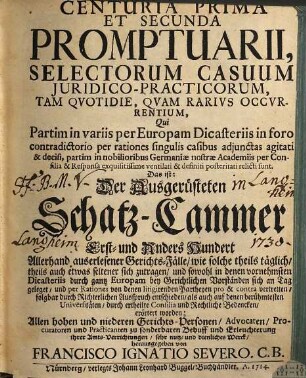 CENTURIA PRIMA
ET SECUNDA
PROMPTUARII,
SELECTORUM CASUUM
JURIDICO-PRACTICORUM,
TAM QVOTIDIE, QVAM RARIVS OCCVR-
RENTIUM,
Qui
Partim in variis per Europam Dicasteriis in foro
contradictorio per rationes singulis casibus adjunctas agitati
& decisi, partim in nobilioribus Germaniæ nostræ Academiis per Con-
silia & Responsa exquisitissime ventilati & definiti posteritati relicti sunt.
Das ist:
Der Ausgerüsteten
Schatz-Cammer
Erst- und Anders Hundert
Langheim
1730.
Allerhand auserlesener Gerichts-Fälle, wie solche theils täglich/
theils auch etwas seltener sich zutragen/ und sowohl in denen vornehmsten
Dicasteriis durch gantz Europam bey Gerichtlichen Vorständen sich an Tag
geleget/ und per Rationes von denen litigirenden Partheyen pro & contra vertreten/
folgbar durch Richterlichen Ausspruch entschieden/ als auch auf denen berühmtesten
Universitäten/ durch ertheilte Consilia und Rechtliche Bedencken/
erörtert worden;
Allen hohen und niederen Gerichts-Personen/ Advocaten/ Pro-
curatoren und Practicanten zu sonderbarem Behuff und Erleuchterung
ihrer Amts-Verrichtungen/ sehr nutz- und dienliches Werck
herausgegeben von
FRANCISCO IGNATIO SEVERO. C.B.
Nürnberg/ verlegts Johann Leonhard Buggel/ Buchhändler, A. 1724.